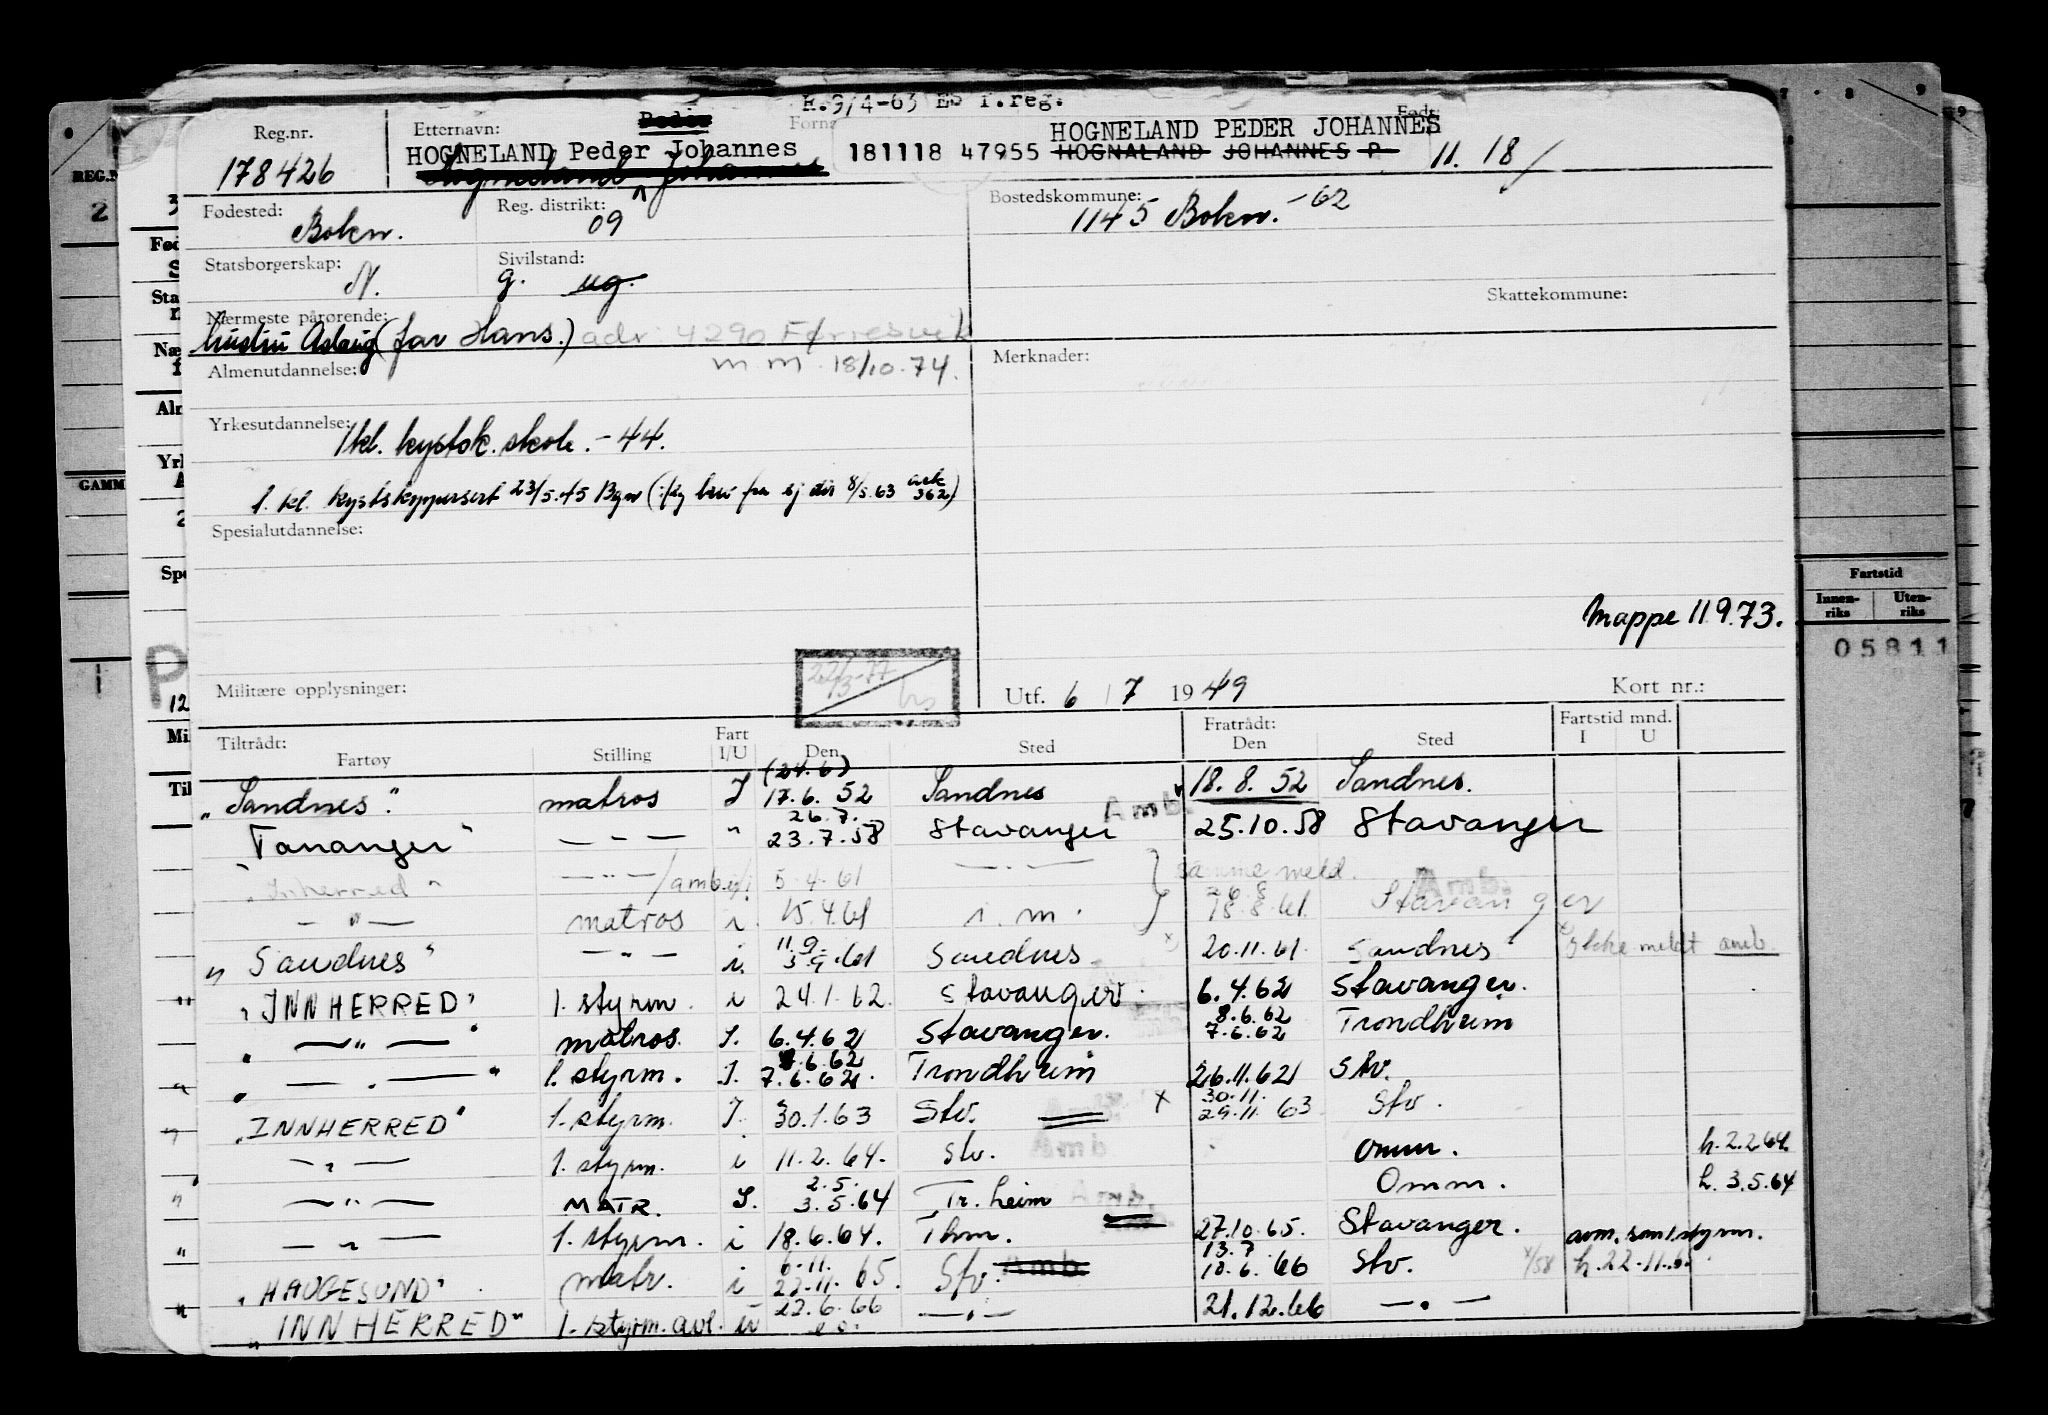 R.9/4-63 ES T.reg.
Reg.nr. Etternavn: Peder Forna Født:
HOGNELAND PEDER JOHANNES
178426 HOGNELAND Peder Johannes 181118 47955 HOGNALAND JOHANNES P 11. 18/
Hogneland Johannes
Fødested: Bokn. Reg. distrikt: 09 Bostedskommune: 1145 Bokn. -62
Statsborgerskap: N. Sivilstand: g. ug.
Skattekommune:
Nærmeste pårørende:
hustru Aslaug (far Hans.) adr 4290 Førresvik
m m 18/10-74.
Almenutdannelse: Merknader:
Yrkesutdannelse: 1 kl. kystsk. skole. -44.
1. kl. kystskippersert 23/5.45 Bgn (iflg brev fra sj dir 8/5.63 ark 362)
Spesialutdannelse:
Mappe 11.9.73.
Militære opplysninger: 22/3-77 Utf. 6 / 7 1949 Kort nr.:
Tiltrådt: Fratrådt: Fartstid mnd.
Fartøy Stilling Fart I/U Den Sted Den Sted I U
"Sandnes." matros I (24.6) 17.6.52 Sandnes 18.8.52 Sandnes.
Tananger" — " — " 26.7. 23.7.58 Stavanger Amb. 25.10.58 Stavanger
"Inherred" — " — /amb. 5.4.61 — " — } samme meld.
— " — matros i. 15.4.61 i. m. 26.8 18.8.61. Stavanger Amb.
" Sandnes" — " — i. 11.9. 3.9.61 Sandnes x) 20.11.61. Sandnes x) Ikke meldt amb.
"INNHERRED" 1. styrm. i 24.1.62. Stavanger. 6.4.62 Stavanger.
" — " — " matros. I. 6.4.62 Stavanger. 8.6.62 7.6.62 Trondheim
" — " — " 1. styrm. I. 8.6.62 7.6.62. Trondheim 26.11.62 Stv.
"INNHERRED" 1. styrm. I. 30.1.63 Stv. x 30.11. 29.11.63 Stv.
— " — 1. styrm. i 11.2.64. Stv. Amb Omm. h. 2.2.64.
— " — MATR. I. 2.5. 3.5.64 Tr.heim Amb. Omm. h. 3.5.64
— " — 1. styrm. i 18.6.64. Thm. 27.10.65. Stavanger. avm. som 1 styrm.
"HAUGESUND" matr. i 6.11. 22.11.65. Stv. Amb. 13.7 10.6.66 Stv. x/58 h. 22-11.65
"INNHERRED" 1. styrm. avl. i 22.6.66 — " — 21.12.66 — " —
REG.N
2
GAMM
Fartstid
Innenriks Utenriks
05811